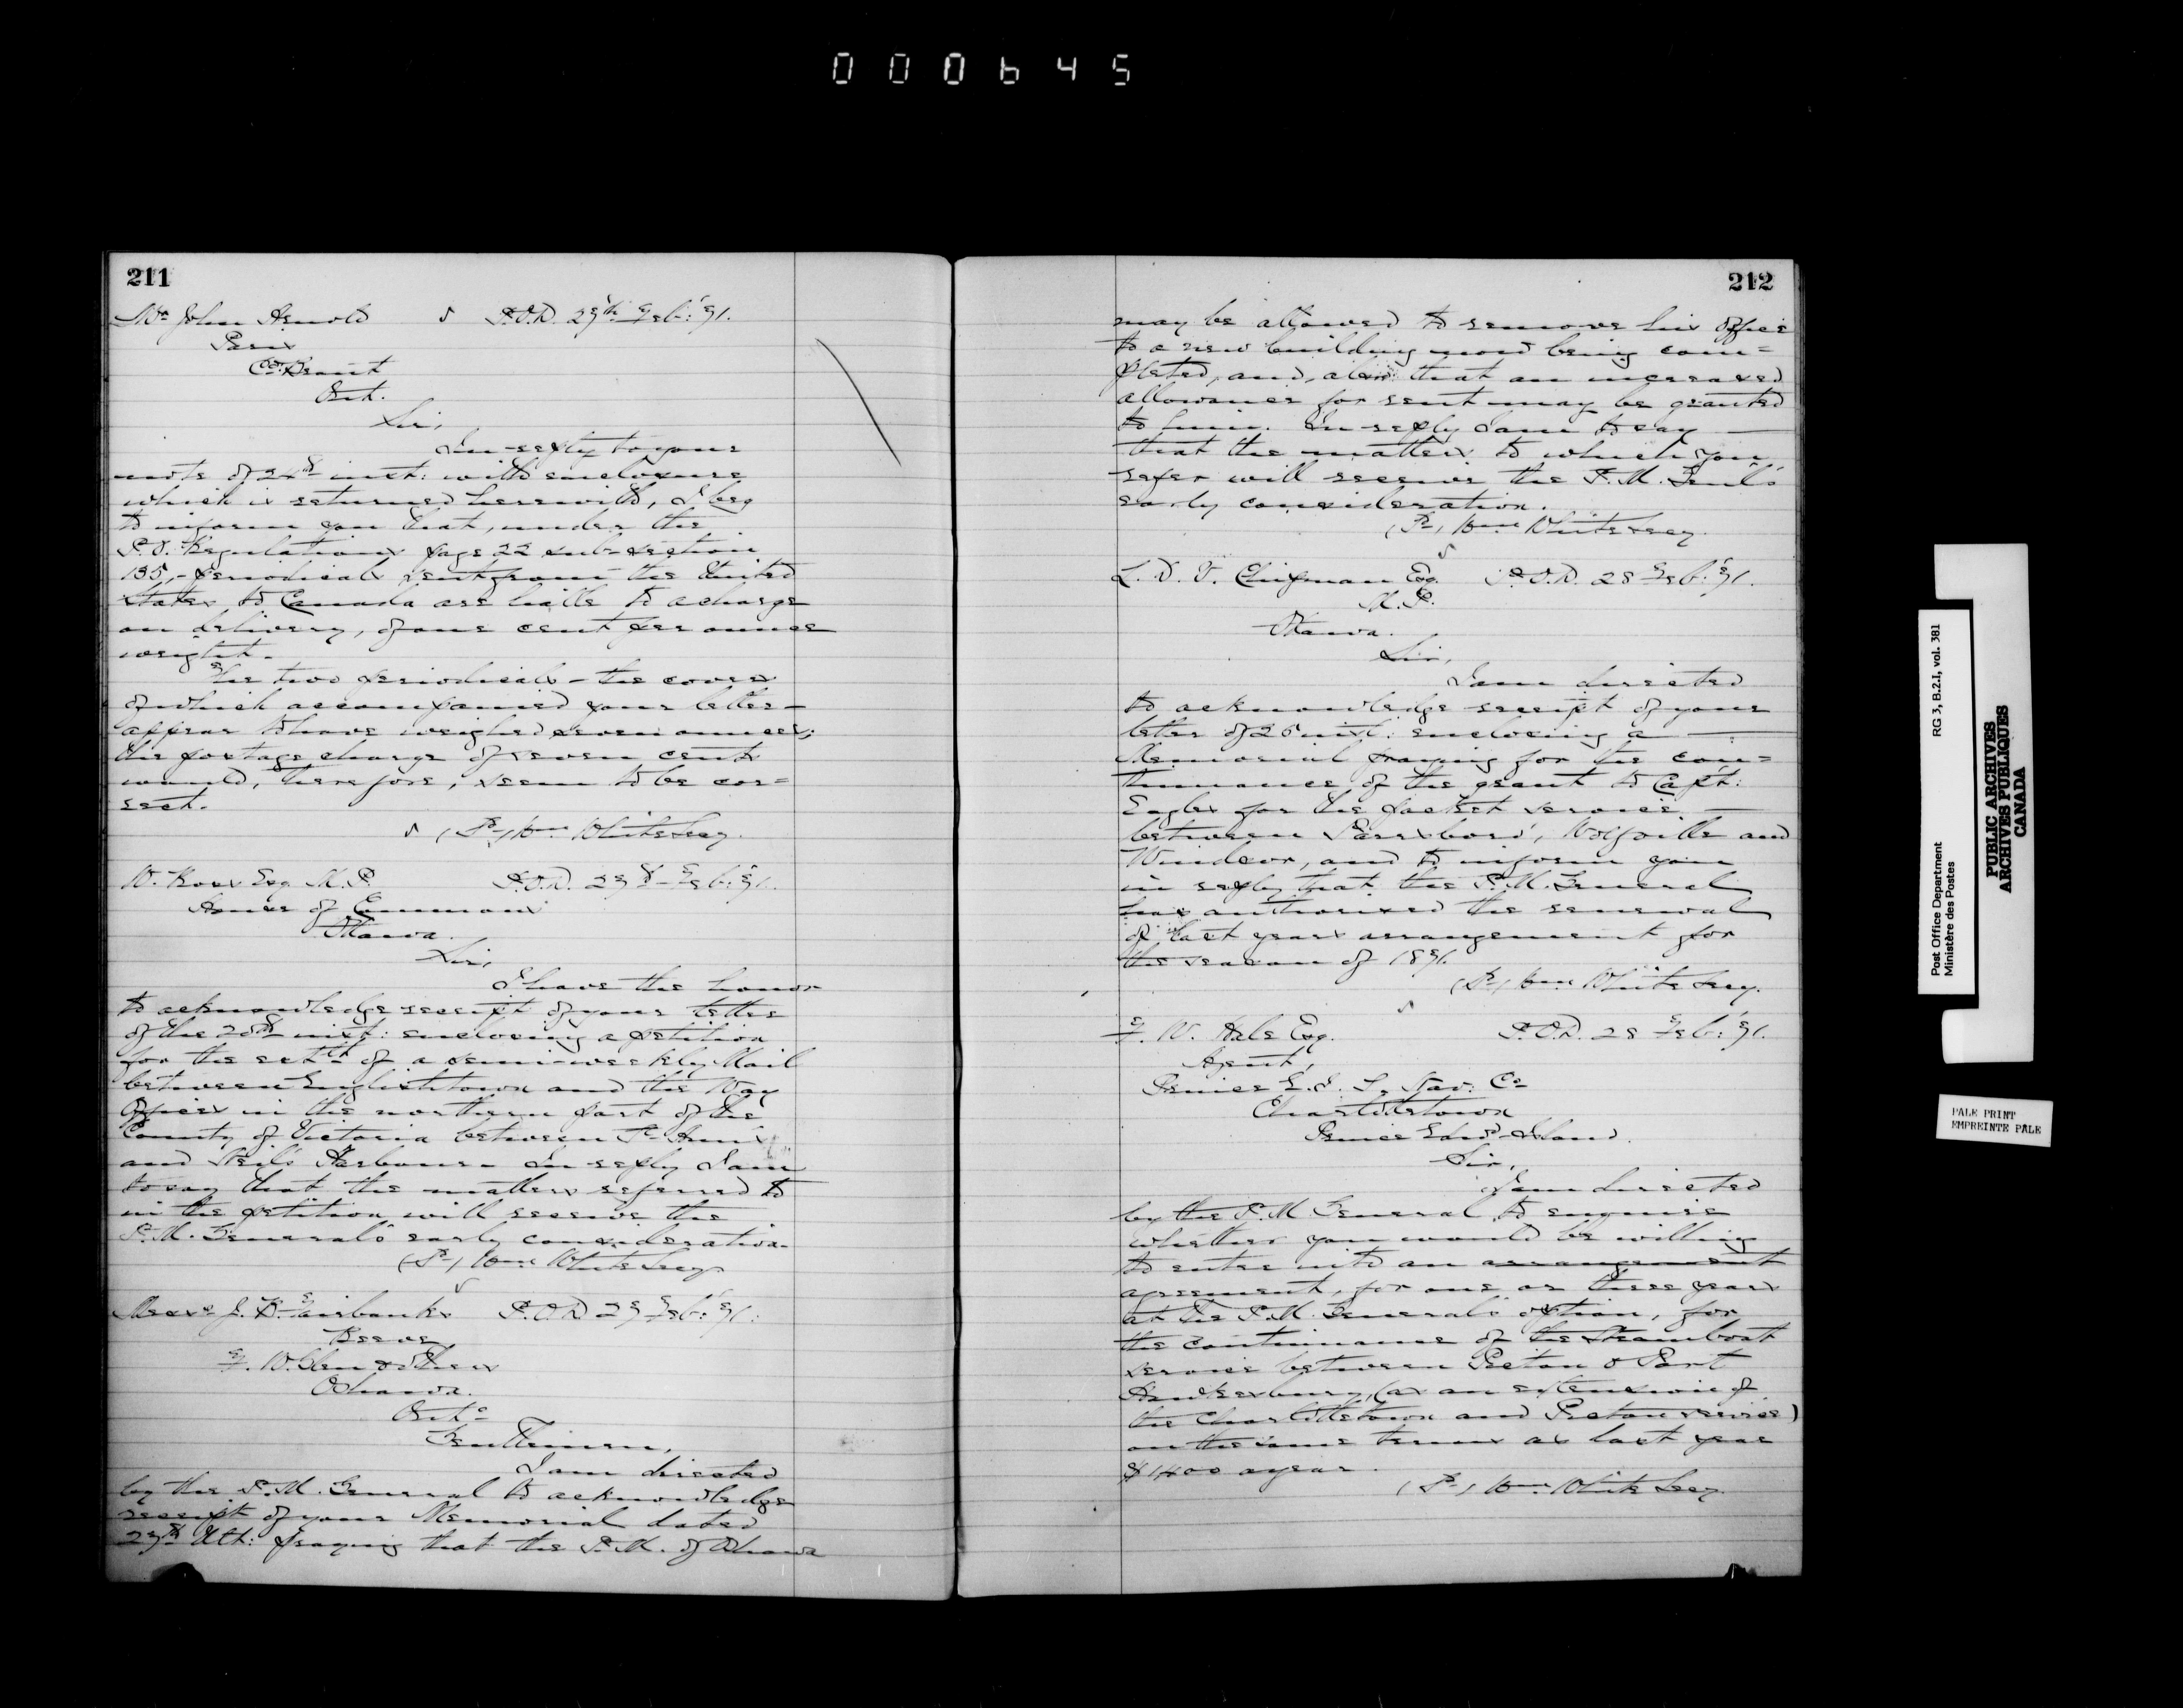 000645
211
Mr John Arnold P.O.D. 27th Feb: '91.
Paris
Co. Brant
Ont.
Sir,
In reply to your
note of 24th inst: with enclosure
which is returned herewith, I beg
to inform you that, under the
P.O. Regulations page 22 sub-section
135,- periodicals sent from the United
States to Canada are liable to a charge
on delivery, of one cent per ounce
weight.
The two periodicals - the covers
of which accompanied your letter -
appear to have weighed seven ounces;
the postage charge of seven cents
would, therefore, seem to be cor=
rect.
(Sd) Wm White Secy.
W. Ross Esq. M.P. P.O.D. 27th Feb: '91.
House of Commons
Ottawa.
Sir,
I have the honor
to acknowledge receipt of your letter
of the 20th inst: enclosing a petition
for the estt of a semi-weekly Mail
between Englishtown and the Way
Offices in the northern part of the
County of Victoria between St Ann's
and Neil's Harbour. In reply I am
to say that the matters referred to
in the petition will receive the
P.M. General's early consideration.
(Sd) Wm White Secy.
Messrs J. B. Fairbanks P.O.D. 27 Feb: '91.
Reeve
F. W. Glen & others
Oshawa.
Onto
Gentlemen,
I am directed
by the P.M. General to acknowledge
receipt of your Memorial dated
27th Ult: praying that the P.M. of Oshawa
212
may be allowed to remove his office
to a new building now being com=
pleted, and, also that an increased
allowance for rent may be granted
to him. In reply I am to say
that the matters to which you
refer will receive the P.M. Genl's
early consideration.
(Sd) Wm White Secy.
L. D. V. Chipman Esq. P.O.D. 28 Feb: '91.
M.P.
Ottawa.
Sir,
I am directed
to acknowledge receipt of your
letter of 25 inst: enclosing a
Memorial praying for the con=
tinuance of the grant to Capt:
for the packet service
between Parrsboro', Wolfville and
Windsor, and to inform you
in reply that the P.M. General
has authorized the renewal
of last years arrangement for
the season of 1891.
(Sd) Wm White Secy.
F. W. Hale Esq. P.O.D. 28 Feb: '91.
Agent,
Prince E. I. S. Nav: Co
Charlottetown
Prince Edwd Island.
Sir,
I am directed
by the P.M. General to enquire
whether you would be willing
to enter into an arrangement
agreement, for one or three years
at the P.M. General's option, for
the continuance of the Steamboat
service between Pictou & Port
Hawkesbury, (as an extension of
the Charlottetown and Pictou service)
on the same terms as last year
$1400 a year.
(Sd) Wm White Secy.
Post Office Department RG 3, B.2.I, vol. 381
Ministère des Postes
PUBLIC ARCHIVES
ARCHIVES PUBLIQUES
CANADA
PALE PRINT
EMPREINTE PALE